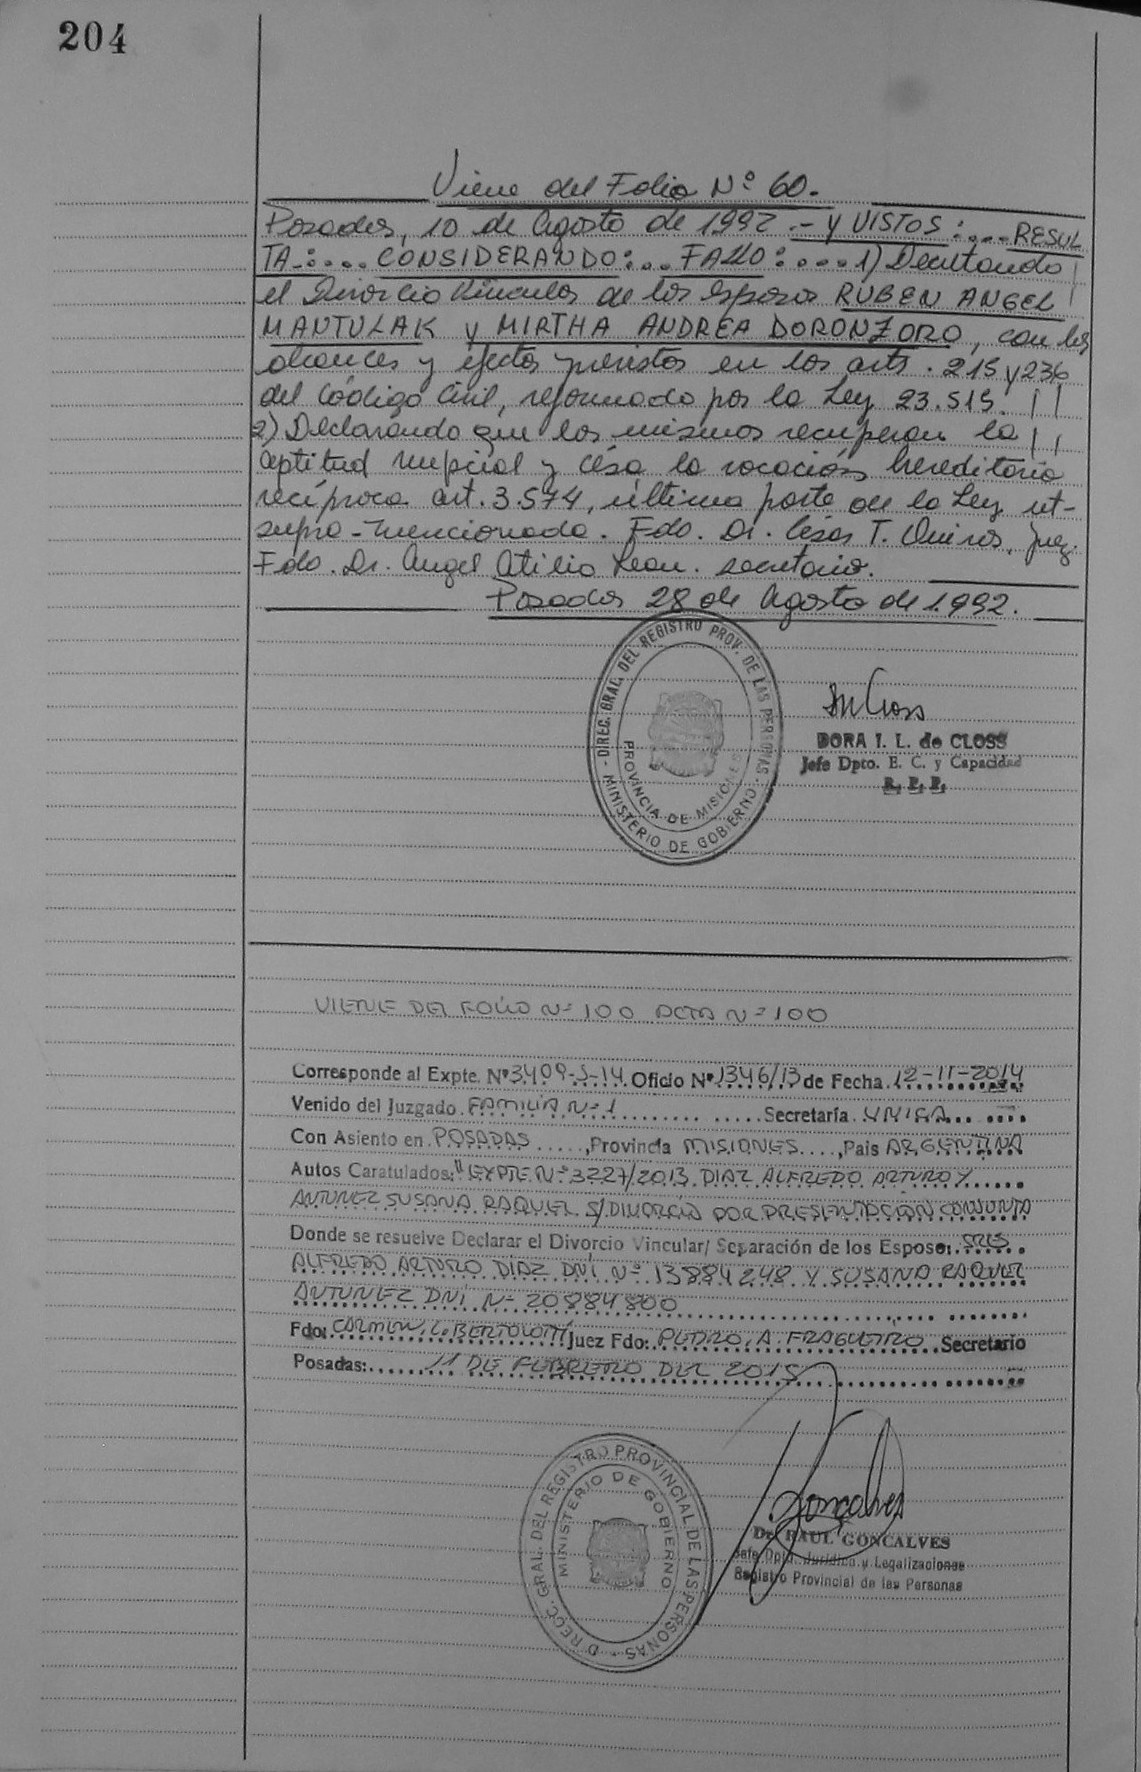 204
Viene del Folio Nº 60.-
Posadas, 10 de Agosto de 1992.- Y VISTOS:... RESUL
TA.:.... CONSIDERANDO:... FALLO:.... 1) Decretando
el Divorcio Vincular de los esposos RUBEN ANGEL
MANTULAK y MIRTHA ANDREA DORONZORO, con los
alcances y efectos previstos en los arts. 215 y 236
del Código Civil, reformado por la Ley 23.515.
2) Declarando que los mismos recuperan la
aptitud nupcial y césa la vocación hereditaria
recíproca art. 3.574, última parte de la Ley ut-
supra-mencionada. Fdo. Dr. César T. Quiros, Juez.
Fdo. Dr. Angel Atilio Leon. secretario.
Posadas 28 de Agosto de 1.992.
- DIREC. GRAL. DEL REGISTRO PROV. DE LAS PERSONAS -
MINISTERIO DE GOBIERNO
PROVINCIA DE MISIONES
DORA I. L. de CLOSS
Jefe Dpto. E. C. y Capacidad
R. P. P.
VIENE DEL FOLIO Nº 100 ACTA Nº 100
Corresponde al Expte. Nº 3409-J-14. Oficio Nº 1346/13 de Fecha 12-11-2014
Venido del Juzgado FAMILIA Nº 1 Secretaría UNICA
Con Asiento en POSADAS, Provincia MISIONES, Pais ARGENTINA
Autos Caratulados: "EXPTE Nº 3227/2013 DIAZ ALFREDO ARTURO Y
ANTUNEZ SUSANA RAQUEL S/DIVORCIO POR PRESENTACION CONJUNTA
Donde se resuelve Declarar el Divorcio Vincular/ Separación de los Esposo: SRES
ALFREDO ARTURO DIAZ DNI Nº 13884248 Y SUSANA RAQUEL
ANTUNEZ DNI Nº 20884800
Fdo: CARMEN, C. BERTOLOTTI Juez Fdo: PEDRO, A. FRAGUEIRO Secretario
Posadas: 11 DE FEBRERO DEL 2015
DIRECC. GRAL. DEL REGISTRO PROVINCIAL DE LAS PERSONAS -
MINISTERIO DE GOBIERNO
Goncalves
Dr. RAUL GONCALVES
Jefe Dpto. Jurídico y Legalizaciones
Registro Provincial de las Personas